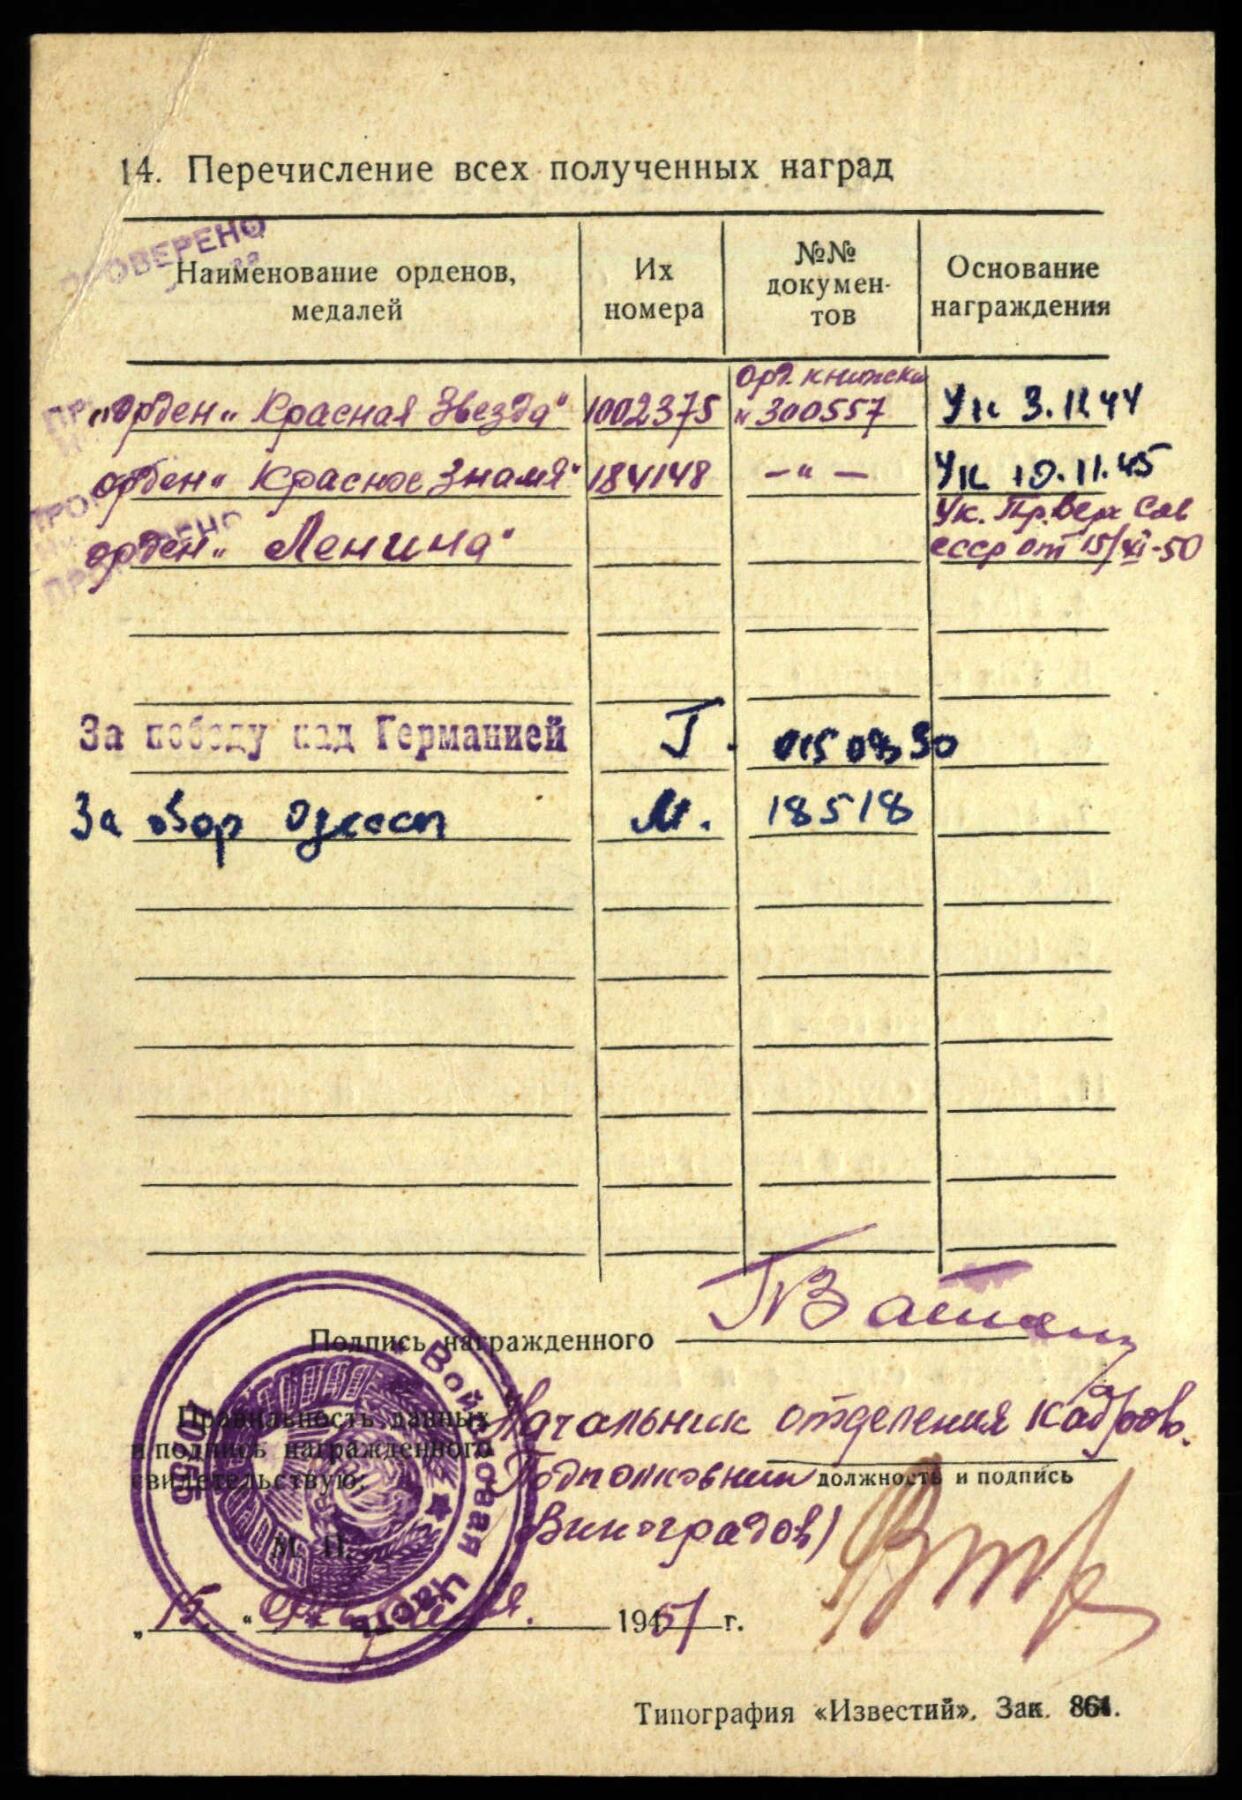 14. Перечисление всех полученных наград
ПРОВЕРЕНО
Наименование орденов, медалей
Их номера
№№ докумен-тов
Основание награждения
орд. книжка
"орден" Красная Звезда" 1002375 н 300557 Ук 3.11.44
орден" Красное Знамя" 184148 — " — Ук 19.11.45
орден" Ленина" Ук. Пр. Верх Сов
СССР от 15/XI-50
За победу над Германией Г. 0150930
За обор Одессы М. 18518
Подпись награжденного
Войсковая Часть
Правильность данных
и подпись награжденного
свидетельствую:
Начальник отделения кадров.
Подполковник
должность и подпись
Виноградов)
М. П.
„15." 1951 г.
Типография «Известий». Зак. 861.